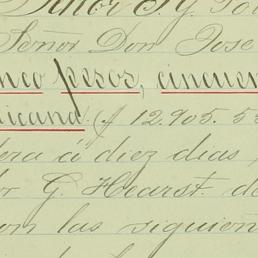 Señor Don Jose
nco pesos, cincuen
icana. ($ 12.905.5
era á diez dias
or G. Hearst. de
on las siguien